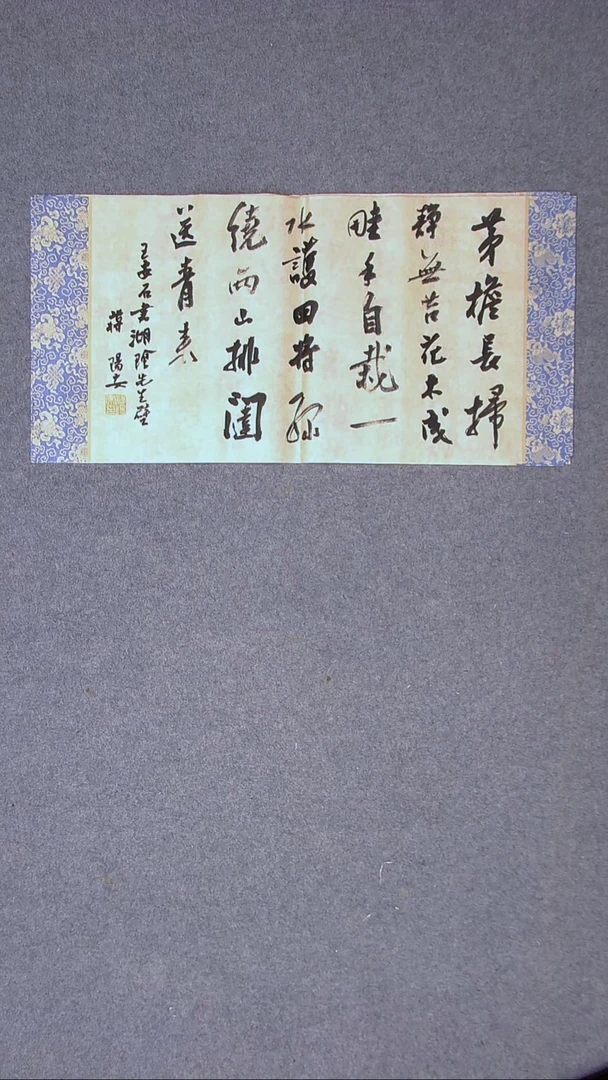 茅檐長掃
靜無苔花木成
畦手自栽一
水護田將綠
繞兩山排闥
送青來
王安石書湖陰先生壁
蔣陽